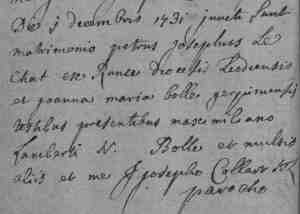 Die j decembris 1731 juncti sunt
matrimonio petrus Josephus Le
Chat ex Rance Diocesis Leodiensis
et joanna maria bolle
testibus presentibus maximiliano
Lamberti N. Bolle et multis
aliis et me J josepho Collart
parocho